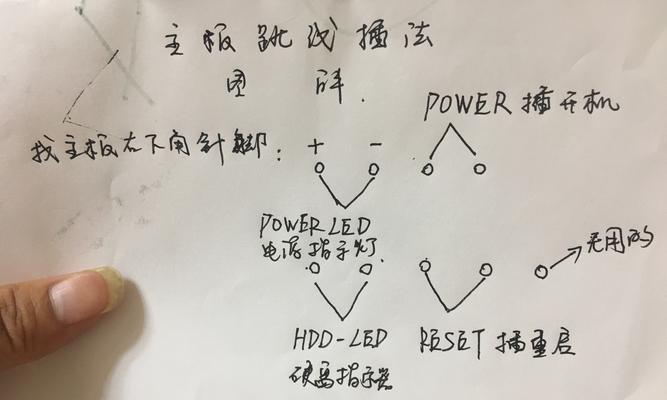 主板跳线插法
图解.
POWER 插开机
找主板右下角针脚:
+ -
POWER LED
电源指示灯.
无用的
HDD-LED
RESET 插重启
硬离指示器